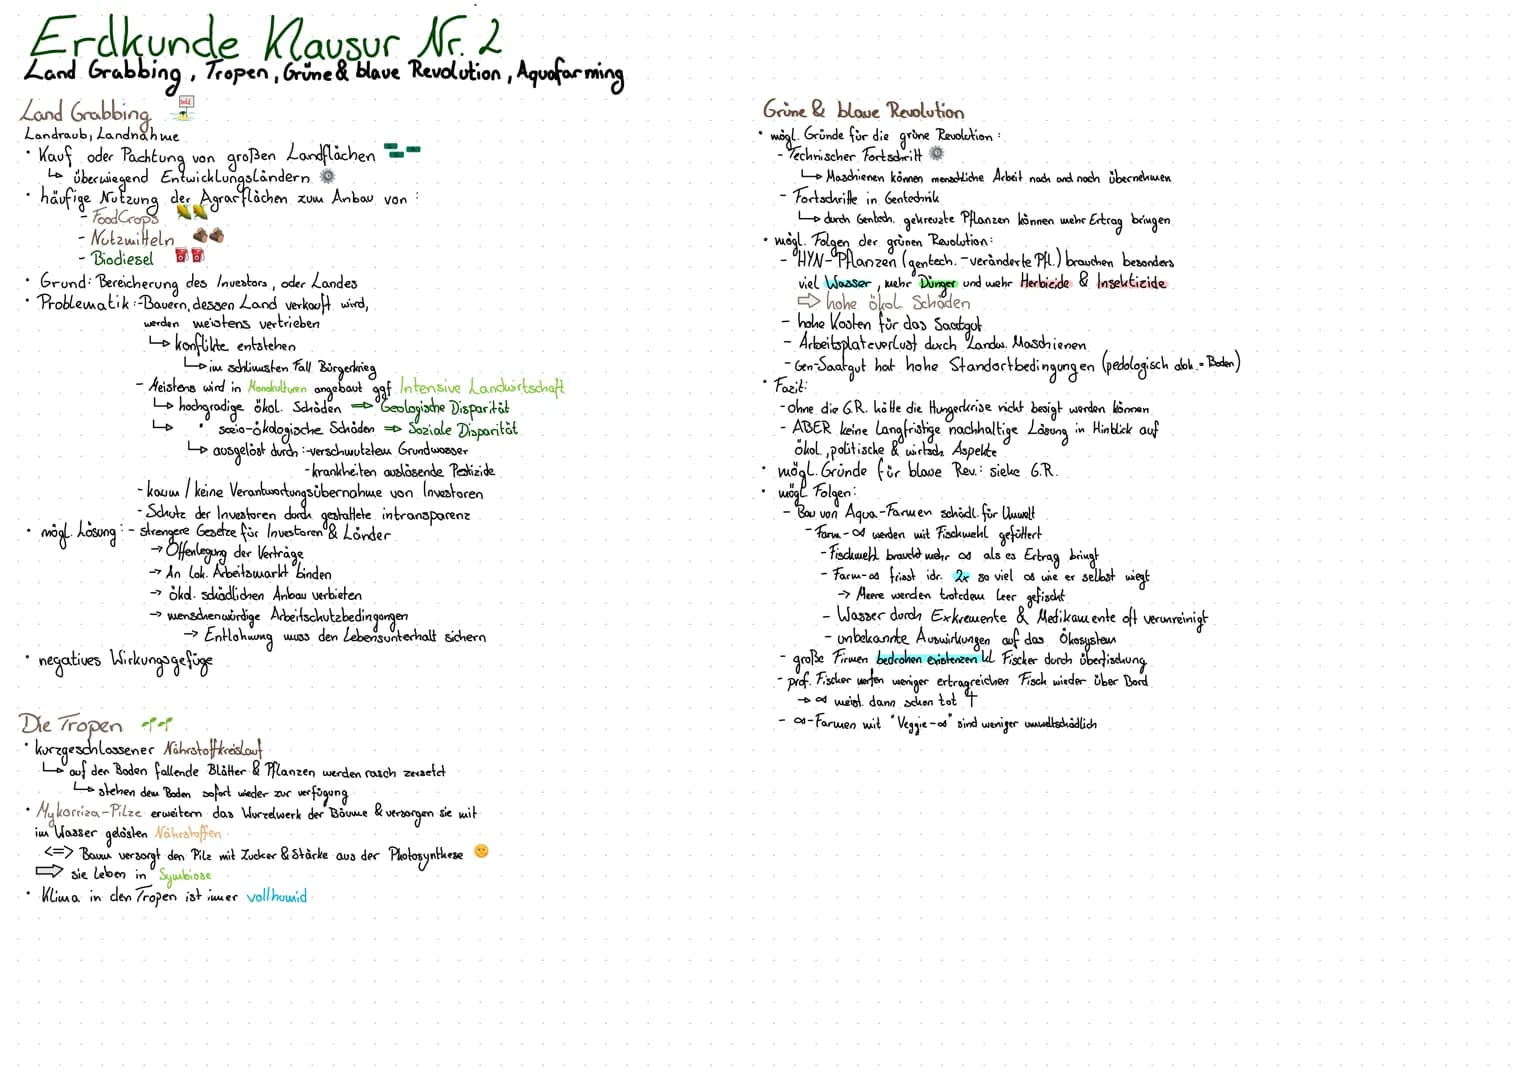 Erdkunde Klausur Nr. 2
Land Grabbing, Tropen, Grüne & blaue Revolution, Aquafarming
Land Grabbing
Landraub, Landnahme
• Kauf oder Pachtung von großen Landflächen
↳ überwiegend Entwicklungsländern
• häufige Nutzung der Agrarflächen zum Anbau von :
- FoodCrops
- Nutzmitteln
- Biodiesel
• Grund: Bereicherung des Investors, oder Landes
• Problematik : -Bauern, dessen Land verkauft wird,
werden meistens vertrieben
↳ konflikte entstehen
↳ im schlimmsten Fall Bürgerkrieg
- Meistens wird in Monokulturen angebaut ggf Intensive Landwirtschaft
↳ hochgradige ökol. Schäden ⇒ Geologische Disparität
↳ " sozio-ökologische Schäden ⇒ Soziale Disparität
↳ ausgelöst durch : -verschmutztem Grundwasser
-krankheiten auslösende Pestizide
- kaum / keine Verantwortungsübernahme von Investoren
- Schutz der Investoren durch gestattete intransparenz
• mögl. Lösung : - strengere Gesetze für Investoren & Länder
→ Offenlegung der Verträge
→ An lok. Arbeitsmarkt binden
→ ökol. schädlichen Anbau verbieten
→ menschenwürdige Arbeitschutzbedingungen
→ Entlohnung muss den Lebensunterhalt sichern
• negatives Wirkungsgefüge
Die Tropen
• kurzgeschlossener Nährstoffkreislauf
↳ auf den Boden fallende Blätter & Pflanzen werden rasch zersetzt
↳ stehen dem Boden sofort wieder zur verfügung
• Mykorriza-Pilze erweitern das Wurzelwerk der Bäume & versorgen sie mit
im Wasser gelösten Nährstoffen
<=> Baum versorgt den Pilz mit Zucker & Stärke aus der Photosynthese
⇒ sie leben in Symbiose
• Klima in den Tropen ist immer vollhumid
Grüne & blaue Revolution
• mögl. Gründe für die grüne Revolution :
- Technischer Fortschritt
↳ Maschienen können menschliche Arbeit nach und nach übernehmen
- Fortschritte in Gentechnik
↳ durch Gentech. gekreuzte Pflanzen können mehr Ertrag bringen
• mögl. Folgen der grünen Revolution:
- HYN-Pflanzen (gentech. -veränderte Pfl.) brauchen besonders
viel Wasser, mehr Dünger und mehr Herbizide & Insektizide
⇒ hohe ökol. Schäden
- hohe Kosten für das Saatgut
- Arbeitsplatzverlust durch Landw. Maschienen
- Gen-Saatgut hat hohe Standortbedingungen (pedologisch abh. = Boden)
• Fazit:
-ohne die G.R. hätte die Hungerkrise nicht besigt werden können
- ABER keine langfristige nachhaltige Lösung in Hinblick auf
ökol., politische & wirtsch. Aspekte
• mögl. Gründe für blaue Rev.: siehe G.R.
• mögl. Folgen:
- Bau von Aqua-Farmen schädl. für Umwelt
- Farm- werden mit Fischmehl gefüttert
- Fischmehl braucht mehr als es Ertrag bringt
- Farm- frisst idr. 2x so viel wie er selbst wiegt
→ Meere werden trotzdem leer gefischt
- Wasser durch Exkremente & Medikamente oft verunreinigt
- unbekannte Auswirkungen auf das Ökosystem
- große Firmen bedrohen existenzen kl. Fischer durch überfischung
- prof. Fischer werfen weniger ertragreichen Fisch wieder über Bord
→ meist. dann schon tot †
- -Farmen mit "Veggie-" sind weniger umweltschädlich